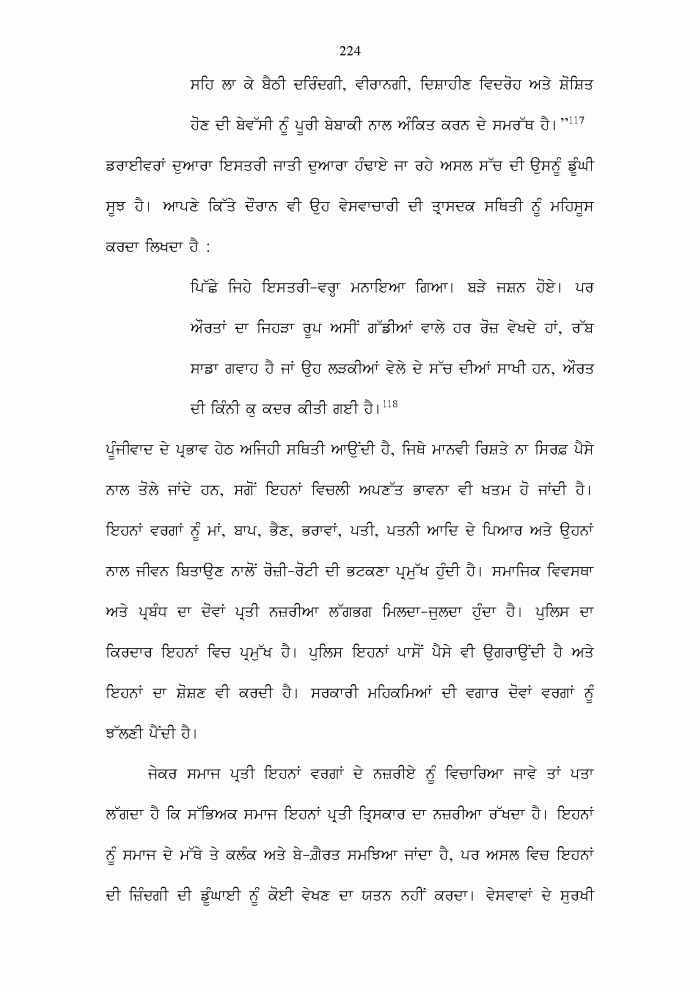 224
ਸਹਿ ਲਾ ਕੇ ਬੈਠੀ ਦਰਿੰਦਗੀ, ਵੀਰਾਨਗੀ, ਦਿਸ਼ਾਹੀਣ ਵਿਦਰੋਹ ਅਤੇ ਸ਼ੋਸ਼ਿਤ
ਹੋਣ ਦੀ ਬੇਵੱਸੀ ਨੂੰ ਪੂਰੀ ਬੇਬਾਕੀ ਨਾਲ ਅੰਕਿਤ ਕਰਨ ਦੇ ਸਮਰੱਥ ਹੈ। ”117
ਡਰਾਈਵਰਾਂ ਦੁਆਰਾ ਇਸਤਰੀ ਜਾਤੀ ਦੁਆਰਾ ਹੰਢਾਏ ਜਾ ਰਹੇ ਅਸਲ ਸੱਚ ਦੀ ਉਸਨੂੰ ਡੂੰਘੀ
ਸੂਝ ਹੈ। ਆਪਣੇ ਕਿੱਤੇ ਦੌਰਾਨ ਵੀ ਉਹ ਵੇਸਵਾਚਾਰੀ ਦੀ ਤ੍ਰਾਸਦਕ ਸਥਿਤੀ ਨੂੰ ਮਹਿਸੂਸ
ਕਰਦਾ ਲਿਖਦਾ ਹੈ :
ਪਿੱਛੇ ਜਿਹੇ ਇਸਤਰੀ-ਵਰ੍ਹਾ ਮਨਾਇਆ ਗਿਆ। ਬੜੇ ਜਸ਼ਨ ਹੋਏ। ਪਰ
ਔਰਤਾਂ ਦਾ ਜਿਹੜਾ ਰੂਪ ਅਸੀਂ ਗੱਡੀਆਂ ਵਾਲੇ ਹਰ ਰੋਜ਼ ਵੇਖਦੇ ਹਾਂ, ਰੱਬ
ਸਾਡਾ ਗਵਾਹ ਹੈ ਜਾਂ ਉਹ ਲੜਕੀਆਂ ਵੇਲੇ ਦੇ ਸੱਚ ਦੀਆਂ ਸਾਖੀ ਹਨ, ਔਰਤ
ਦੀ ਕਿੰਨੀ ਕੁ ਕਦਰ ਕੀਤੀ ਗਈ ਹੈ।118
ਪੂੰਜੀਵਾਦ ਦੇ ਪ੍ਰਭਾਵ ਹੇਠ ਅਜਿਹੀ ਸਥਿਤੀ ਆਉਂਦੀ ਹੈ, ਜਿਥੇ ਮਾਨਵੀ ਰਿਸ਼ਤੇ ਨਾ ਸਿਰਫ਼ ਪੈਸੇ
ਨਾਲ ਤੋਲੇ ਜਾਂਦੇ ਹਨ, ਸਗੋਂ ਇਹਨਾਂ ਵਿਚਲੀ ਅਪਣੱਤ ਭਾਵਨਾ ਵੀ ਖਤਮ ਹੋ ਜਾਂਦੀ ਹੈ।
ਇਹਨਾਂ ਵਰਗਾਂ ਨੂੰ ਮਾਂ, ਬਾਪ, ਭੈਣ, ਭਰਾਵਾਂ, ਪਤੀ, ਪਤਨੀ ਆਦਿ ਦੇ ਪਿਆਰ ਅਤੇ ਉਹਨਾਂ
ਨਾਲ ਜੀਵਨ ਬਿਤਾਉਣ ਨਾਲੋਂ ਰੋਜ਼ੀ-ਰੋਟੀ ਦੀ ਭਟਕਣਾ ਪ੍ਰਮੁੱਖ ਹੁੰਦੀ ਹੈ। ਸਮਾਜਿਕ ਵਿਵਸਥਾ
ਅਤੇ ਪ੍ਰਬੰਧ ਦਾ ਦੋਵਾਂ ਪ੍ਰਤੀ ਨਜ਼ਰੀਆ ਲੱਗਭਗ ਮਿਲਦਾ-ਜੁਲਦਾ ਹੁੰਦਾ ਹੈ। ਪੁਲਿਸ ਦਾ
ਕਿਰਦਾਰ ਇਹਨਾਂ ਵਿਚ ਪ੍ਰਮੁੱਖ ਹੈ। ਪੁਲਿਸ ਇਹਨਾਂ ਪਾਸੋਂ ਪੈਸੇ ਵੀ ਉਗਰਾਉਂਦੀ ਹੈ ਅਤੇ
ਇਹਨਾਂ ਦਾ ਸ਼ੋਸ਼ਣ ਵੀ ਕਰਦੀ ਹੈ। ਸਰਕਾਰੀ ਮਹਿਕਮਿਆਂ ਦੀ ਵਗਾਰ ਦੋਵਾਂ ਵਰਗਾਂ ਨੂੰ
ਝੱਲਣੀ ਪੈਂਦੀ ਹੈ।
ਜੇਕਰ ਸਮਾਜ ਪ੍ਰਤੀ ਇਹਨਾਂ ਵਰਗਾਂ ਦੇ ਨਜ਼ਰੀਏ ਨੂੰ ਵਿਚਾਰਿਆ ਜਾਵੇ ਤਾਂ ਪਤਾ
ਲੱਗਦਾ ਹੈ ਕਿ ਸੱਭਿਅਕ ਸਮਾਜ ਇਹਨਾਂ ਪ੍ਰਤੀ ਤ੍ਰਿਸਕਾਰ ਦਾ ਨਜ਼ਰੀਆ ਰੱਖਦਾ ਹੈ। ਇਹਨਾਂ
ਨੂੰ ਸਮਾਜ ਦੇ ਮੱਥੇ ਤੇ ਕਲੰਕ ਅਤੇ ਬੇ-ਗ਼ੈਰਤ ਸਮਝਿਆ ਜਾਂਦਾ ਹੈ, ਪਰ ਅਸਲ ਵਿਚ ਇਹਨਾਂ
ਦੀ ਜ਼ਿੰਦਗੀ ਦੀ ਡੂੰਘਾਈ ਨੂੰ ਕੋਈ ਵੇਖਣ ਦਾ ਯਤਨ ਨਹੀਂ ਕਰਦਾ। ਵੇਸਵਾਵਾਂ ਦੇ ਸੁਰਖੀ